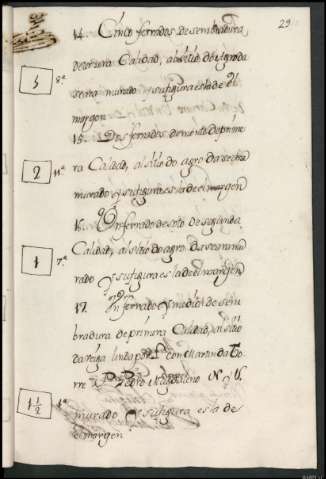 29
14. Cinco ferrados de sembradura,
de tersera Calidad, al sitio do
serra murado y su figura es la de el
margen
5 8ª
15. Dos ferrados de
ra Calidad, al sitio do agro da
2 11ª
murado y su figura es la de el margen
16. Un ferrado de soto de segunda
Calidad, al sitio do agro da
1 7ª
rado y su figura es la de el margen
17. Un ferrado y medio de sem
bradura de primera Calidad, al sitio
da Veiga linda por L. con Martin da To
rre P. Pedro Magdaleno N. y V.
1 1/2 4ª
murado y su figura es la de
el margen